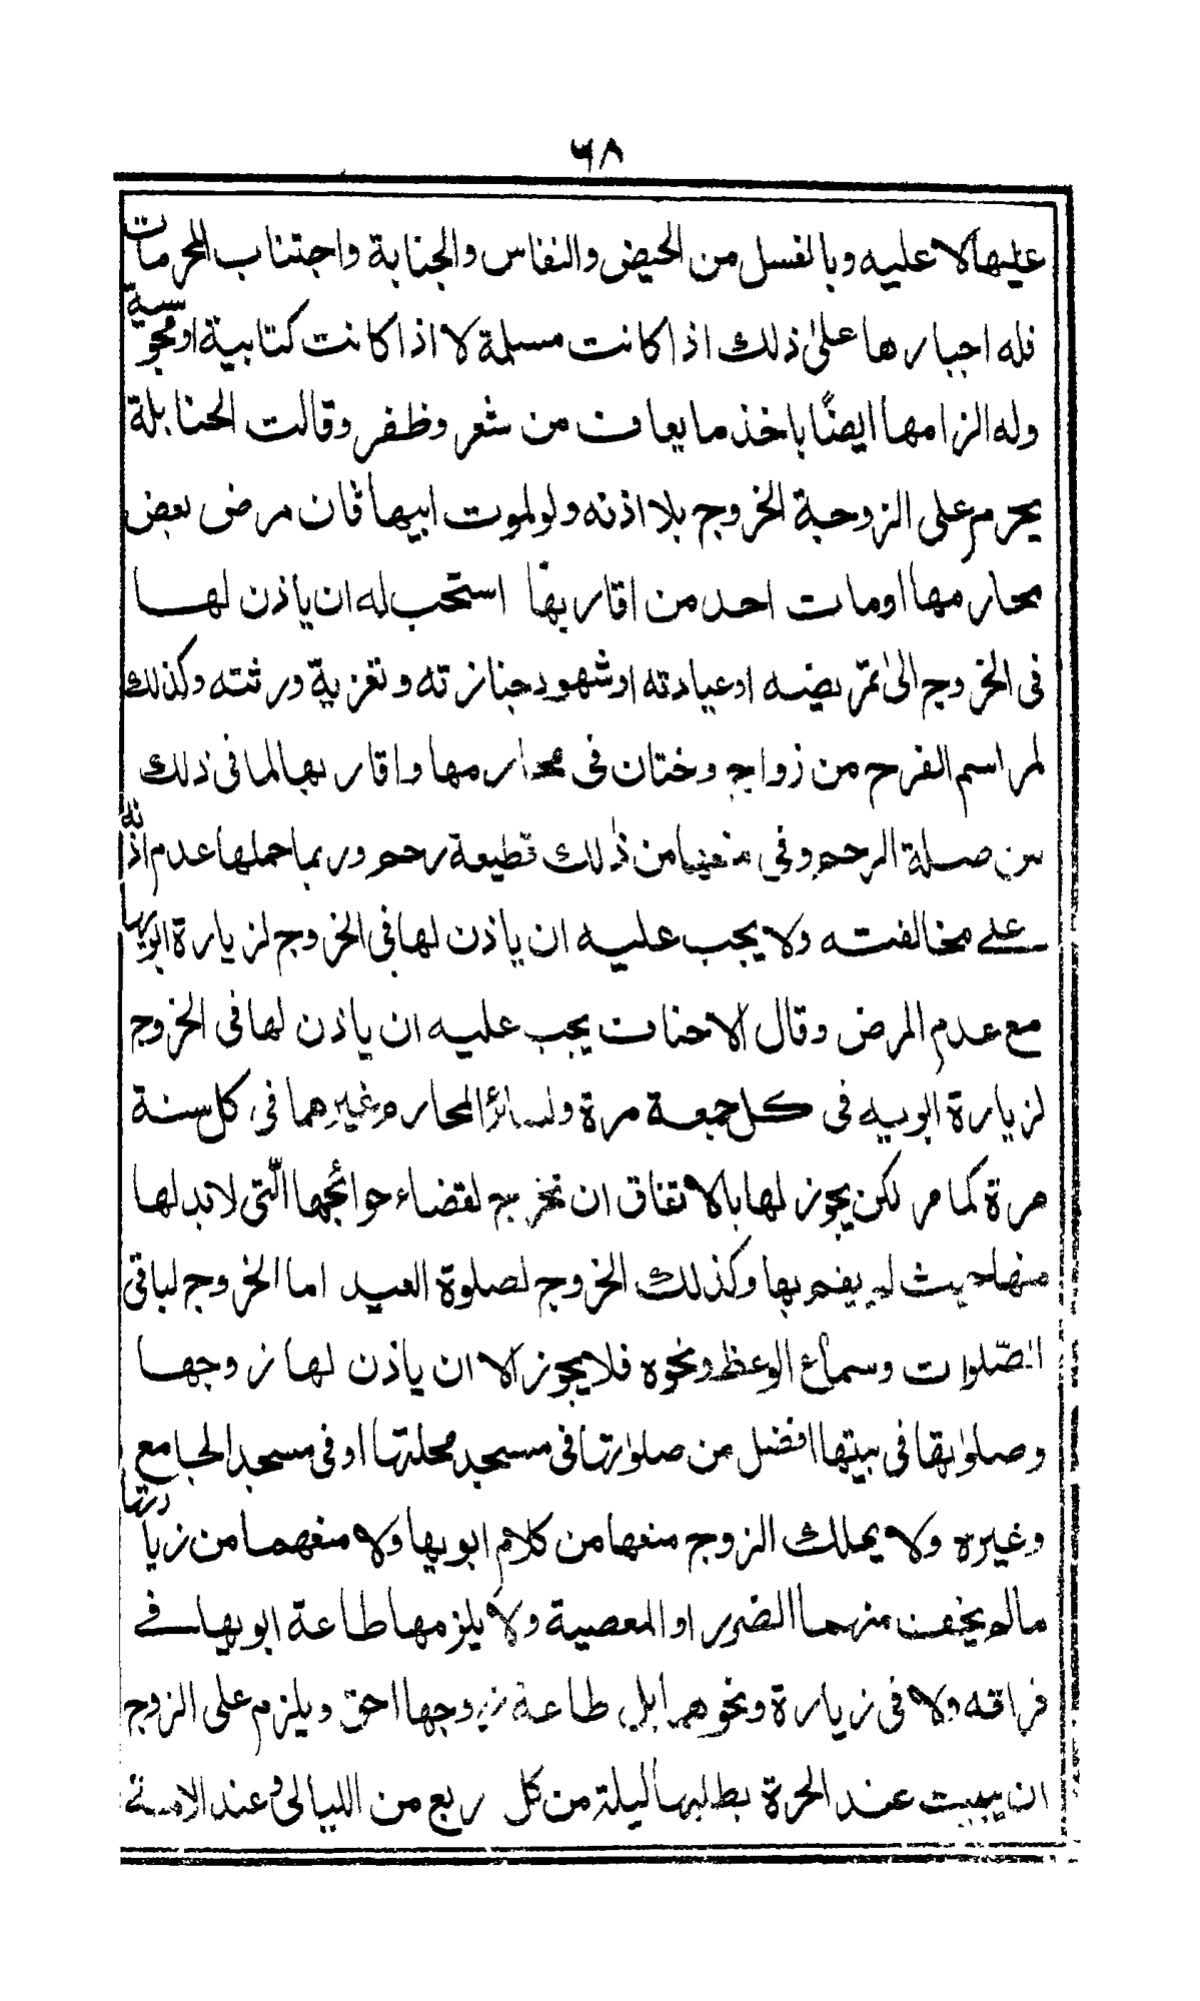 ٦٨
عليها لا عليه وبالغسل من الحيض والنفاس والجنابة واجتناب المحرمات
فله اجبارها على ذلك اذا كانت مسلمة لا اذا كانت كتابية او مجوسية
وله الزامها ايضًا باخذ ما يعاف من شعر وظفر وقالت الحنابلة
يحرم على الزوجة الخروج بلا اذنه ولو لموت ابيها فان مرض بعض
محارمها او مات احد من اقاربها استحب له ان ياذن لها
فى الخروج الى تمريضه او عيادته او شهود جنازته وتعزية ورثته وكذلك
لمراسم الفرح من زواج وختان فى محارمها واقاربها لما فى ذلك
من صلة الرحم وفى منعها من ذلك قطيعة رحم وربما حملها عدم اذنه
على مخالفته ولا يجب عليه ان ياذن لها فى الخروج لزيارة ابويها
مع عدم المرض وقال الاحناف يجب عليه ان ياذن لها فى الخروج
لزيارة ابويه فى كل جمعة مرة ولسائر المحارم وغيرهما فى كل سنة
مرة كما مر لكن يجوز لها بالاتفاق ان تخرج لقضاء حوائجها الّتى لابد لها
منها حيث لم يقم بها وكذلك الخروج لصلوة العيد اما الخروج لباقى
الصّلوات وسماع الوعظ ونحوه فلا يجوز الا ان ياذن لها زوجها
وصلوٰتها فى بيتها افضل من صلوٰتها فى مسجد محلتها او فى مسجد الجامع
وغيره ولا يملك الزوج منعها من كلام ابويها ولا منعهما من زيارتها
مالم يخف منهما الضرر او المعصية ولا يلزمها طاعة ابويها فى
فراقه ولا فى زيارة ونحوهما بل طاعة زوجها احق ويلزم على الزوج
ان يبيت عند الحرة بطلبها ليلة من كل ربع من الليالى وعند الامة